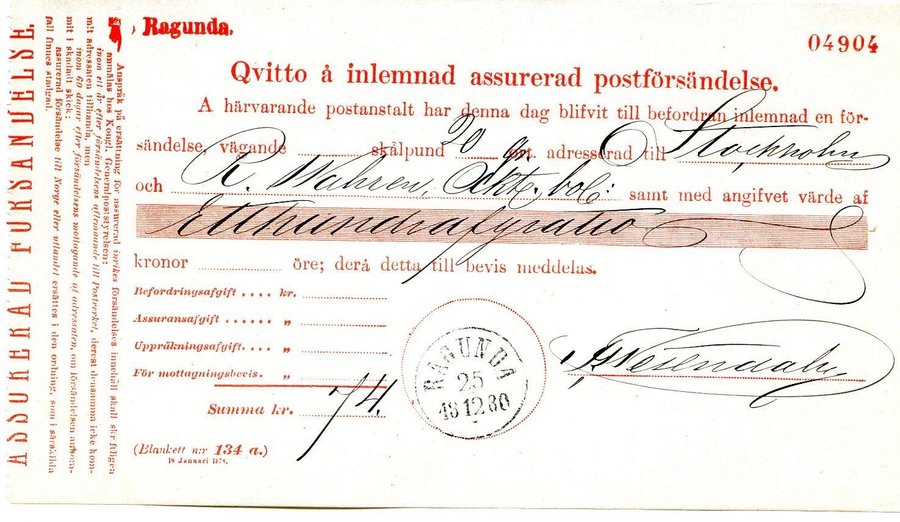 Ragunda.
04904
Qvitto å inlemnad assurerad postförsändelse.
A härvarande postanstalt har denna dag blifvit till befordran inlemnad en för-
sändelse, vägande skålpund 20 ort. adresserad till Stockholm
och R. Wahren, samt med angifvet värde af
Etthundrafyratio
kronor öre; derå detta till bevis meddelas.
Befordringsafgift .... kr.
Assuransafgift .... „
Uppräkningsafgift.... „
För mottagningsbevis. „
Summa kr. 74
RAGUNDA
25
1812 80
(Blankett n:r 134 a.)
ASSURERAD FÖRSÄNDELSE.
Anspråk på ersättning för assurerad inrikes försändelses innehåll skall skriftligen
anmälas hos Kongl. Generalpoststyrelsen:
inom ett år efter försändelsens aflemnande till Postverket, derest densamma icke kom-
mit adressaten tillhanda, men
inom 60 dagar efter försändelsens mottagande af adressaten, om försändelsen ankom-
mit i skadadt skick;
assurerad försändelse till Norge eller utlandet ersättes i den ordning, som i särskilda
fall finnes stadgad.